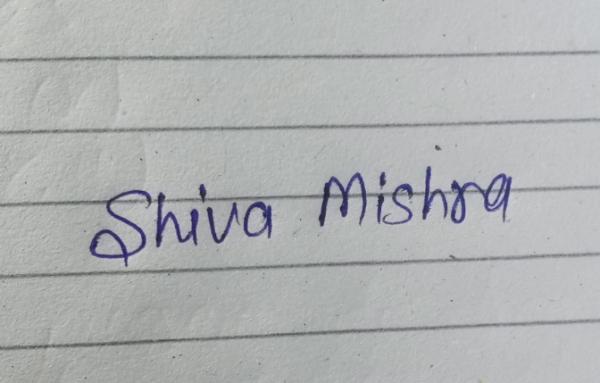 Shiva Mishra